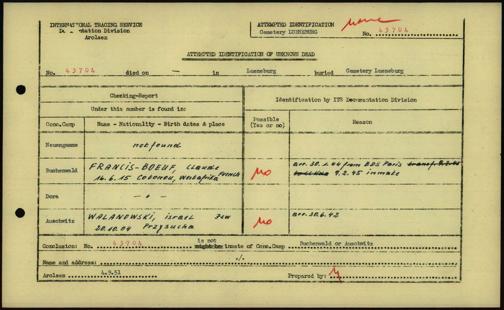 INTERNATIONAL TRACING SERVICE
Documentation Division
Arolsen
ATTEMPTED IDENTIFICATION
Cemetery LUENEBURG No. 43704
ATTEMPTED IDENTIFICATION OF UNKNOWN DEAD
No. 43704 died on — in Lueneburg buried Cemetery Lueneburg
Checking-Report
Under this number is found in:
Identification by ITS Documentation Division
Conc.Camp
Name - Nationality - Birth dates & place
Possible
(Yes or no)
Reason
Neuengamme
not found
Buchenwald
FRANCIS-BOEUF, Claude
16.6.15 Cotonou, Westafrika French
No
arr. 30.1.44 from BDS Paris
9.2.45 inmate
Dora
- " -
Auschwitz
WALANOWSKI, israel Jew
20.10.04 Przysucha
No
arr. 30.6.42
Conclusion: No. 43704 is not
might be inmate of Conc.Camp Buchenwald or Auschwitz
Name and address: ./.
Arolsen 4.9.51 Prepared by: